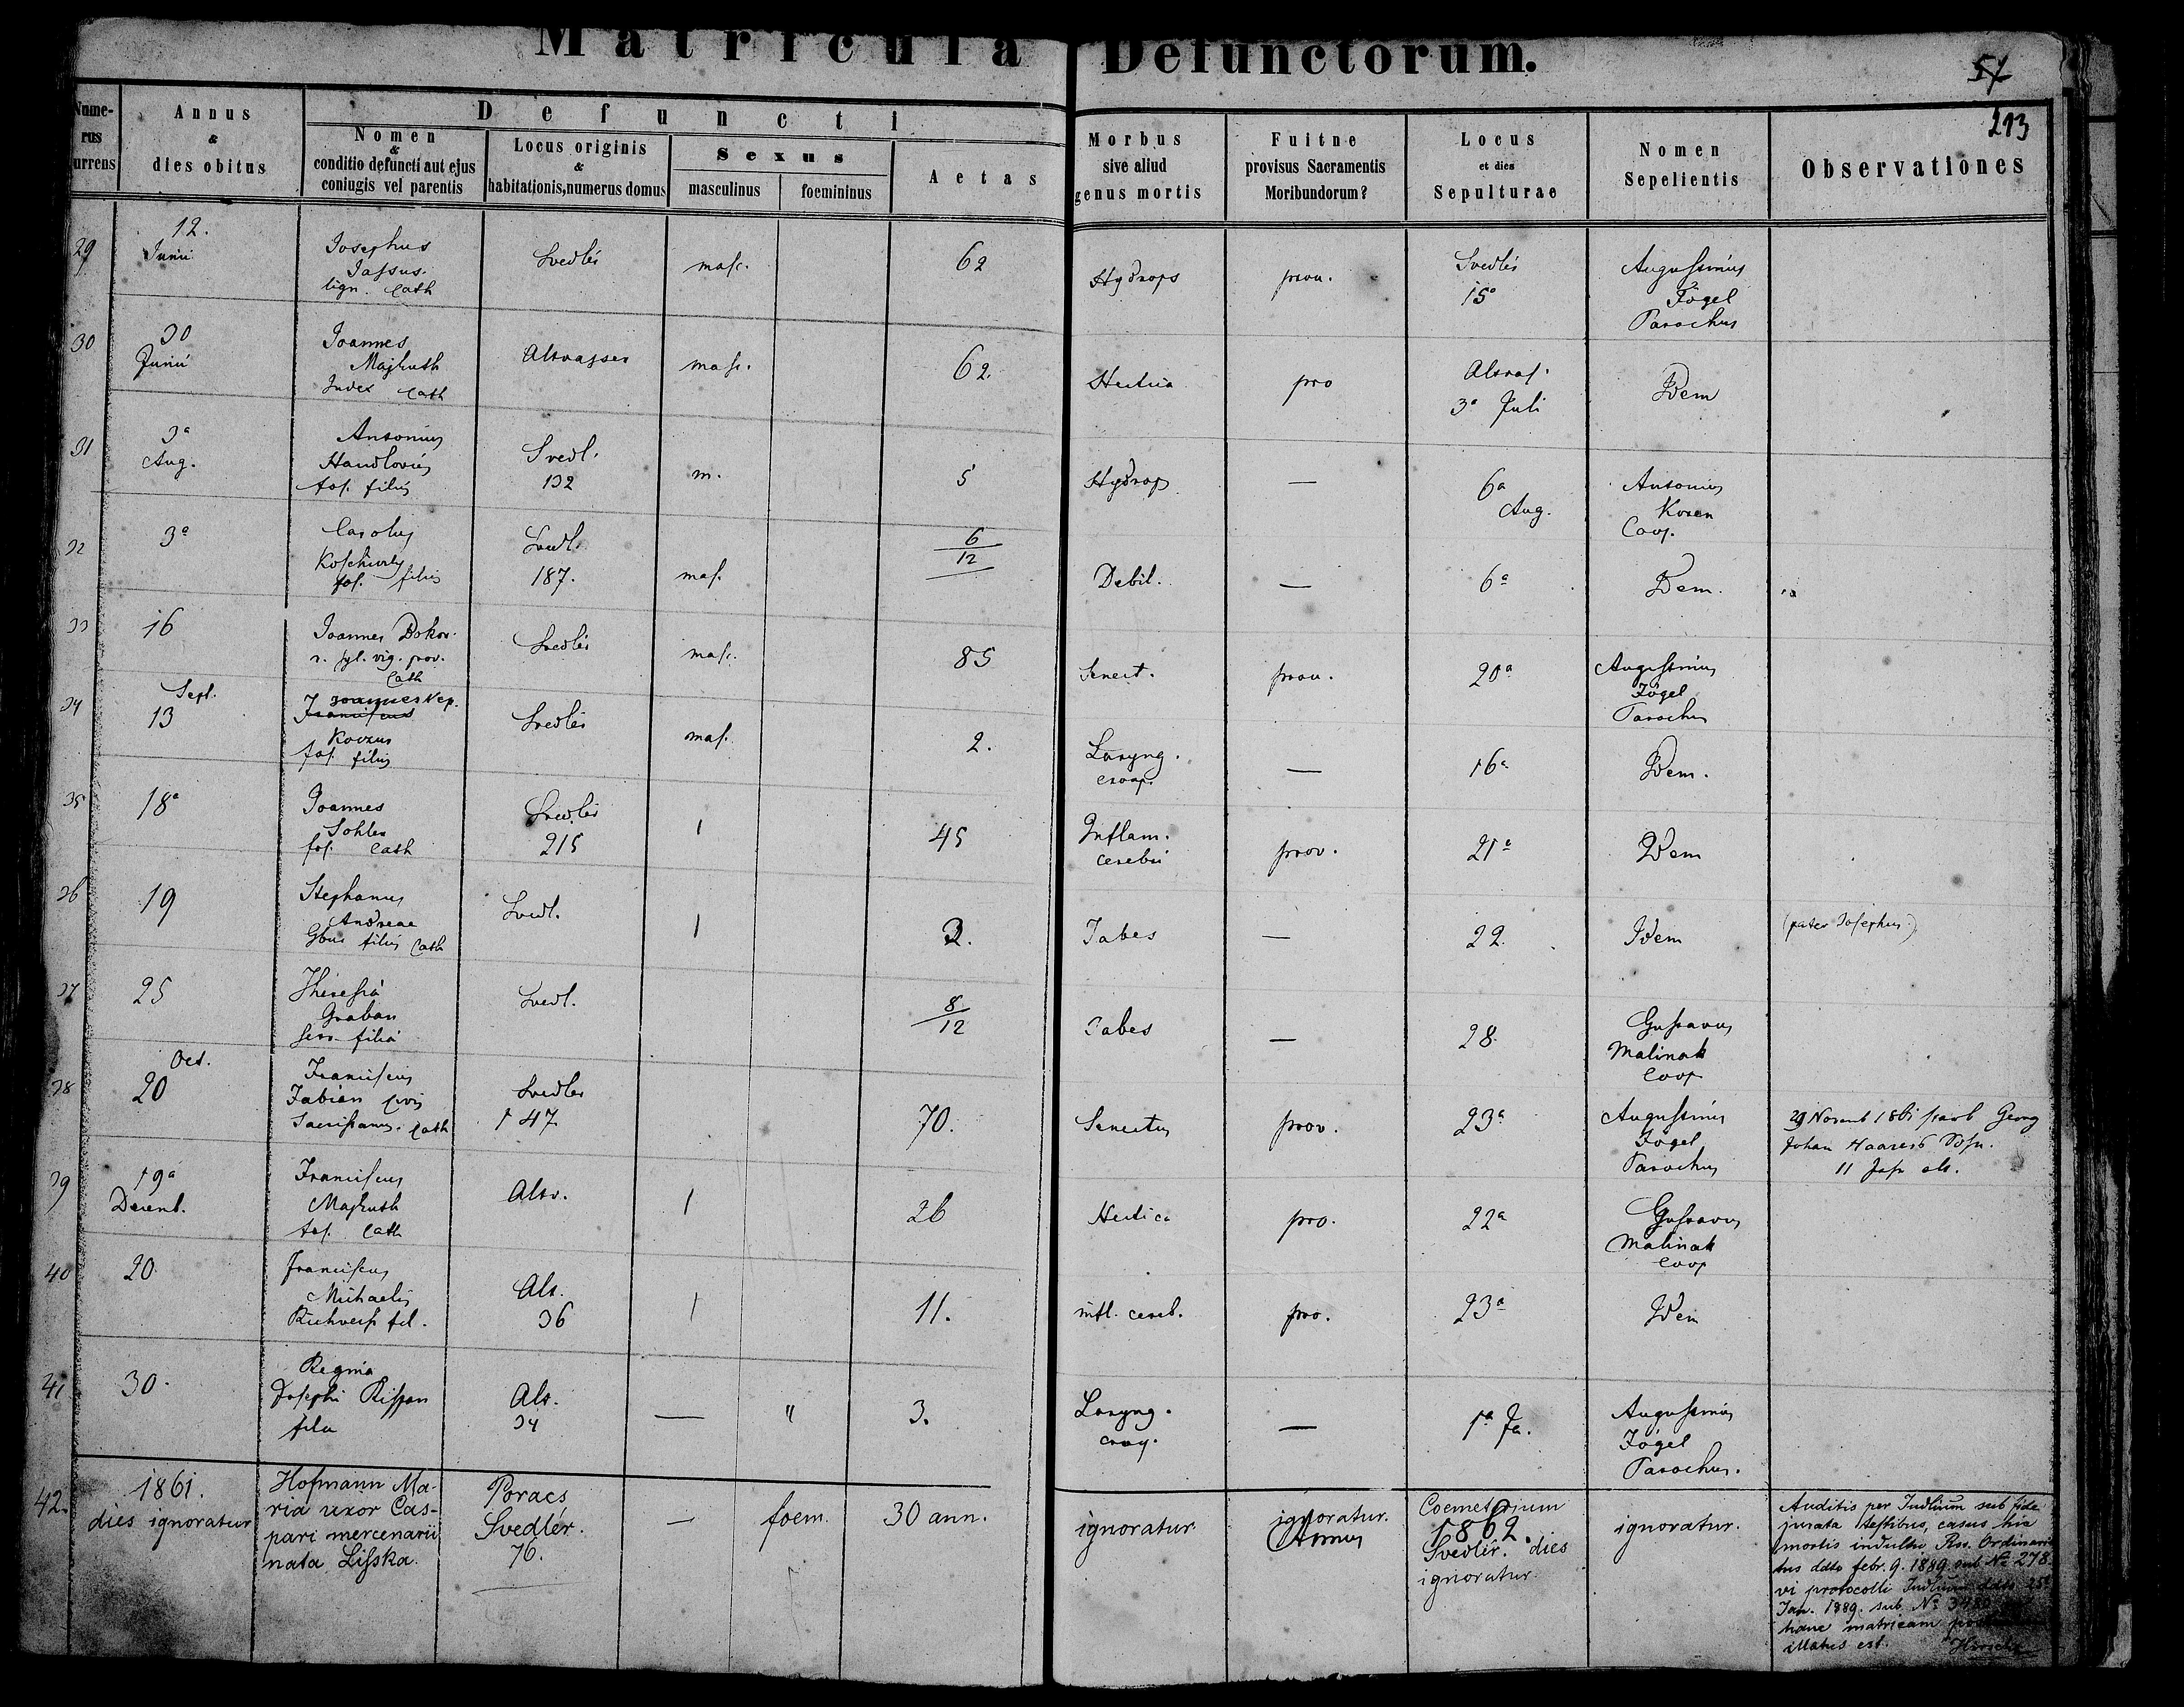 Matricula Defunctorum.
51
213
Numerus currens
Annus & dies obitus
Defuncti
Nomen & conditio defuncti aut ejus coniugis vel parentis
Locus originis & habitationis, numerus domus
Sexus
masculinus
foemininus
Aetas
Morbus sive aliud genus mortis
Fuitne provisus Sacramentis Moribundorum?
Locus et dies Sepulturae
Nomen Sepelientis
Observationes
29
12. Junii
Josephus
lign. Cath
Svedlér
masc.
62
Hydrops
prov.
Svedlér 15a
Augustinus Fögel Parochus
30
30 Junii
Joannes
Majkuth
Judex Cath
Altvasser
masc.
62.
Hectica
pro
Altvas.
3a Juli
Idem
31
3a Aug.
Antonius
fos. filius
Svedl.
132
m.
5
Hydrops
—
6a Aug.
Antonius
Coop.
32
3a
Carolus
fos. filius
Svedl.
187.
mas.
6/12
Debil.
—
6a
Idem.
33
16
Joannes
Cath
Svedlér
masc.
85
Senect.
prov.
20a
Augustinus Fögel Parochus
34
Sept. 13
Joannes Nep.
Franciscus
fos. filius
Svedlér
mas.
2.
Laryng. croup.
—
16a
Idem.
35
18a
Joannes
fos. Cath
Svedlér
215
1
45
Inflam. cerebri
prov.
21a
Idem
36
19
Stephanus
Andreae
filius Cath
Svedl.
1
3.
Tabes
—
22.
Idem
(pater Josephus.)
37
25
Theresia
Graban
filia
Svedl.
8/12
Tabes
—
28.
Gustavus Malinak Coop
38
Oct. 20
Franciscus
Fabian civis
Sacristanus. Cath
Svedler
147
70.
Senectus
prov.
23a
Augustinus Fögel Parochus
29 Novemb 1861 starb Georg
Johan
11 Jahr alt.
39
19a Decemb.
Franciscus
Majkuth
fos. Cath
Altv.
1
26
Hectica
pro.
22a
Gustavus Malinak Coop
40
20.
Franciscus
Michaelis
fil.
Alt.
36
1
11.
infl. cereb.
pro.
23a
Idem
41
30.
Regina
Josephi
filia
Alt.
34
—
"
3.
Laryng. croup.
—
1a Ja.
Augustinus Fögel Parochus.
42.
1861.
dies ignoratur
Hofmann Ma-
ria uxor Cas-
pari mercenarii
nata Lisska.
Poracs
Svedlér.
76.
—
foem.
30 ann.
ignoratur
ignoratur.
Annus
Coemeterium
1862.
Svedlér. dies
ignoratur
ignoratur.
Auditis per Judlium sub fide
jurata testibus, casus hic
mortis indultu Rss. Ordinaria-
tus ddto febr. 9. 1889 sub No 278.
vi protocolli Judlium ddto 25a
Jan. 1889. sub No
hanc matricam
illatus est.